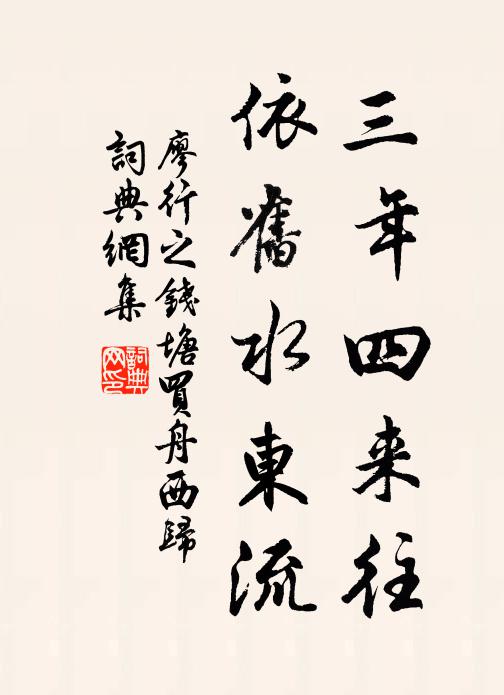 三年四来往
依舊水東流
廖行之錢塘買舟西歸
詞典網集
詞典
网印